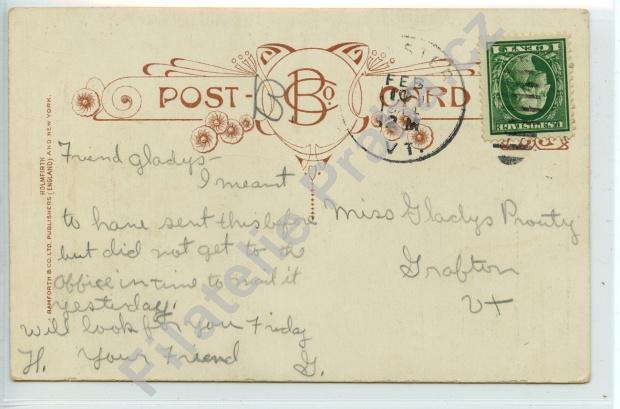 POST CARD
B Co.
FEB
10
2 M
VT.
BAMFORTH & CO. LTD. PUBLISHERS (ENGLAND) AND NEW YORK.
HOLMFIRTH
Friend gladys-
I meant
to have sent this before
but did not get to the
Office in time to mail it
yesterday.
Will look for you Friday
H. Your Friend G.
Miss Gladys Prouty
Grafton
Vt
U.S. POSTAGE
1 CENT 1
Filatelie Prague.cz